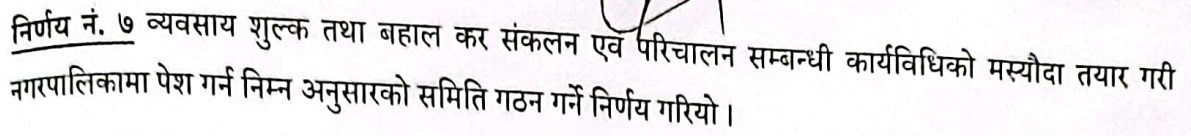 निर्णय नं. ७ व्यवसाय शुल्क तथा बहाल कर संकलन एवं परिचालन सम्बन्धी कार्यविधिको मस्यौदा तयार गरी
नगरपालिकामा पेश गर्न निम्न अनुसारको समिति गठन गर्ने निर्णय गरियो ।